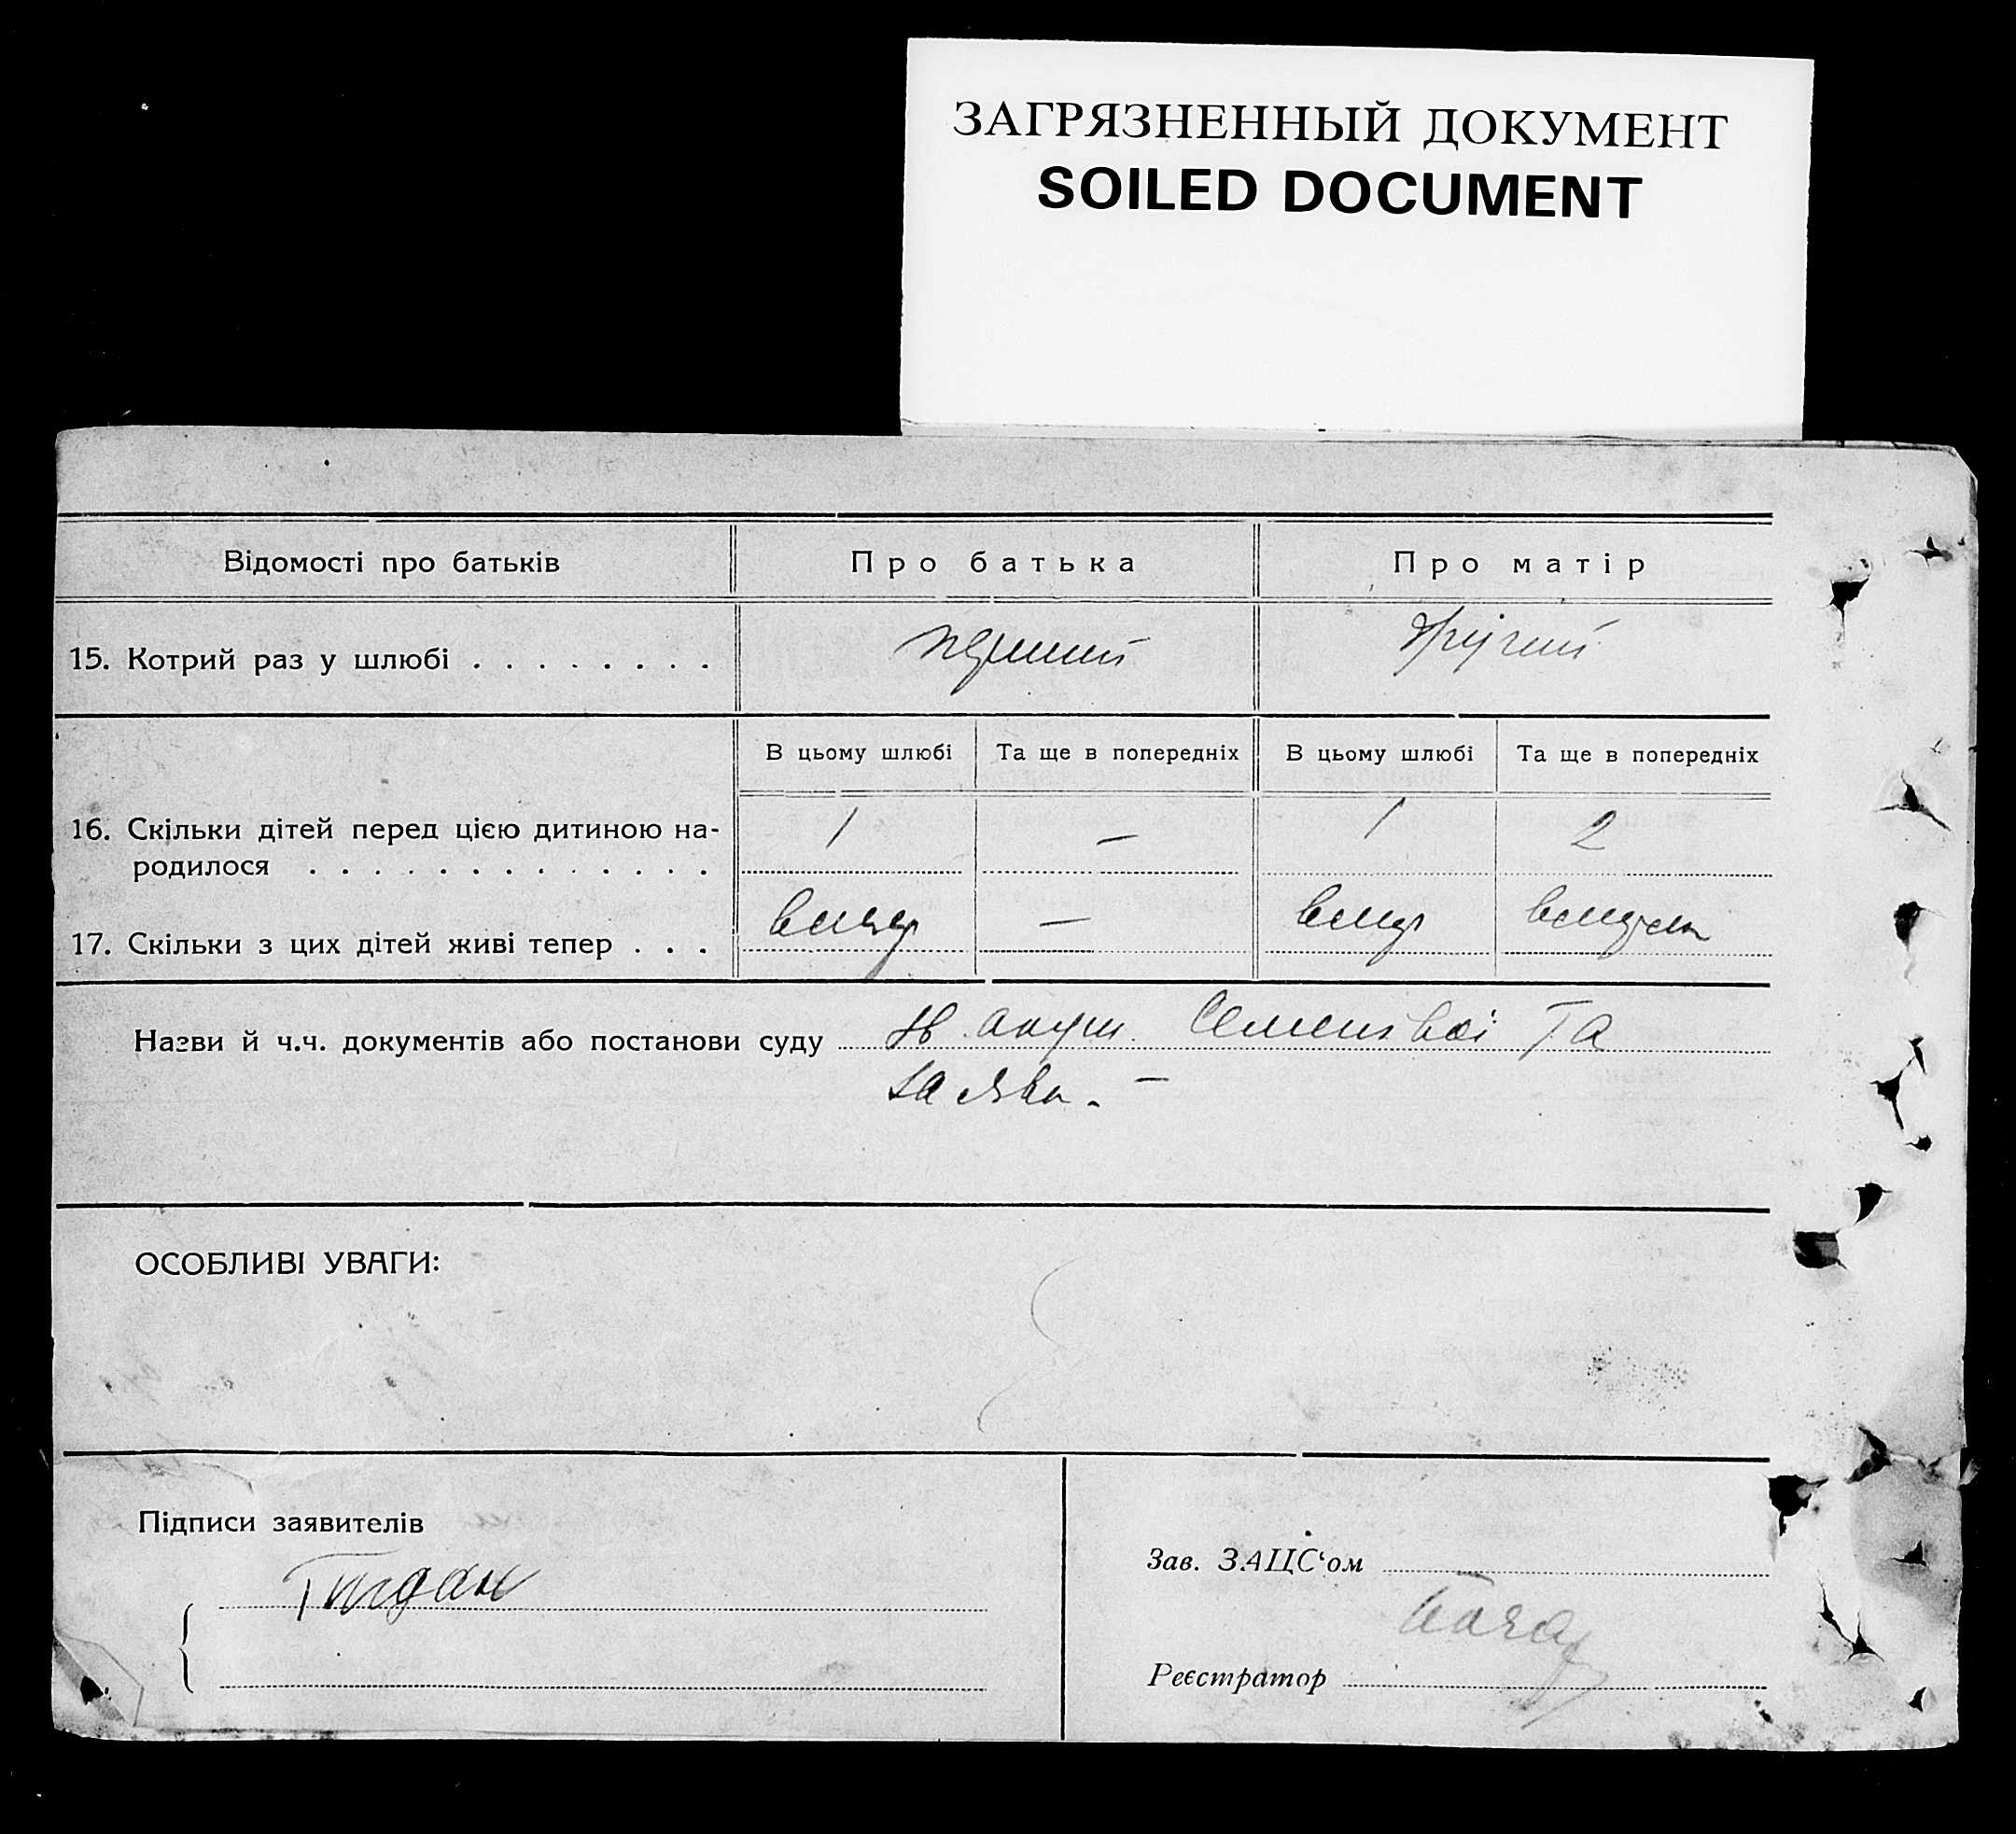 ЗАГРЯЗНЕННЫЙ ДОКУМЕНТ
SOILED DOCUMENT
Відомості про батьків
Про батька
Про матір
15. Котрий раз у шлюбі . . . . . . . .
перший
другий
В цьому шлюбі
Та ще в попередніх
В цьому шлюбі
Та ще в попередніх
16. Скільки дітей перед цією дитиною на-
родилося . . . . . . . . . . . . .
1
—
1
2
17. Скільки з цих дітей живі тепер . . .
вмер
—
вмер
вмерли
Назви й ч.ч. документів або постанови суду
акуш. Семенівої та
заява. —
ОСОБЛИВІ УВАГИ:
Підписи заявителів
Зав. ЗАЦС‘ом
Реєстратор